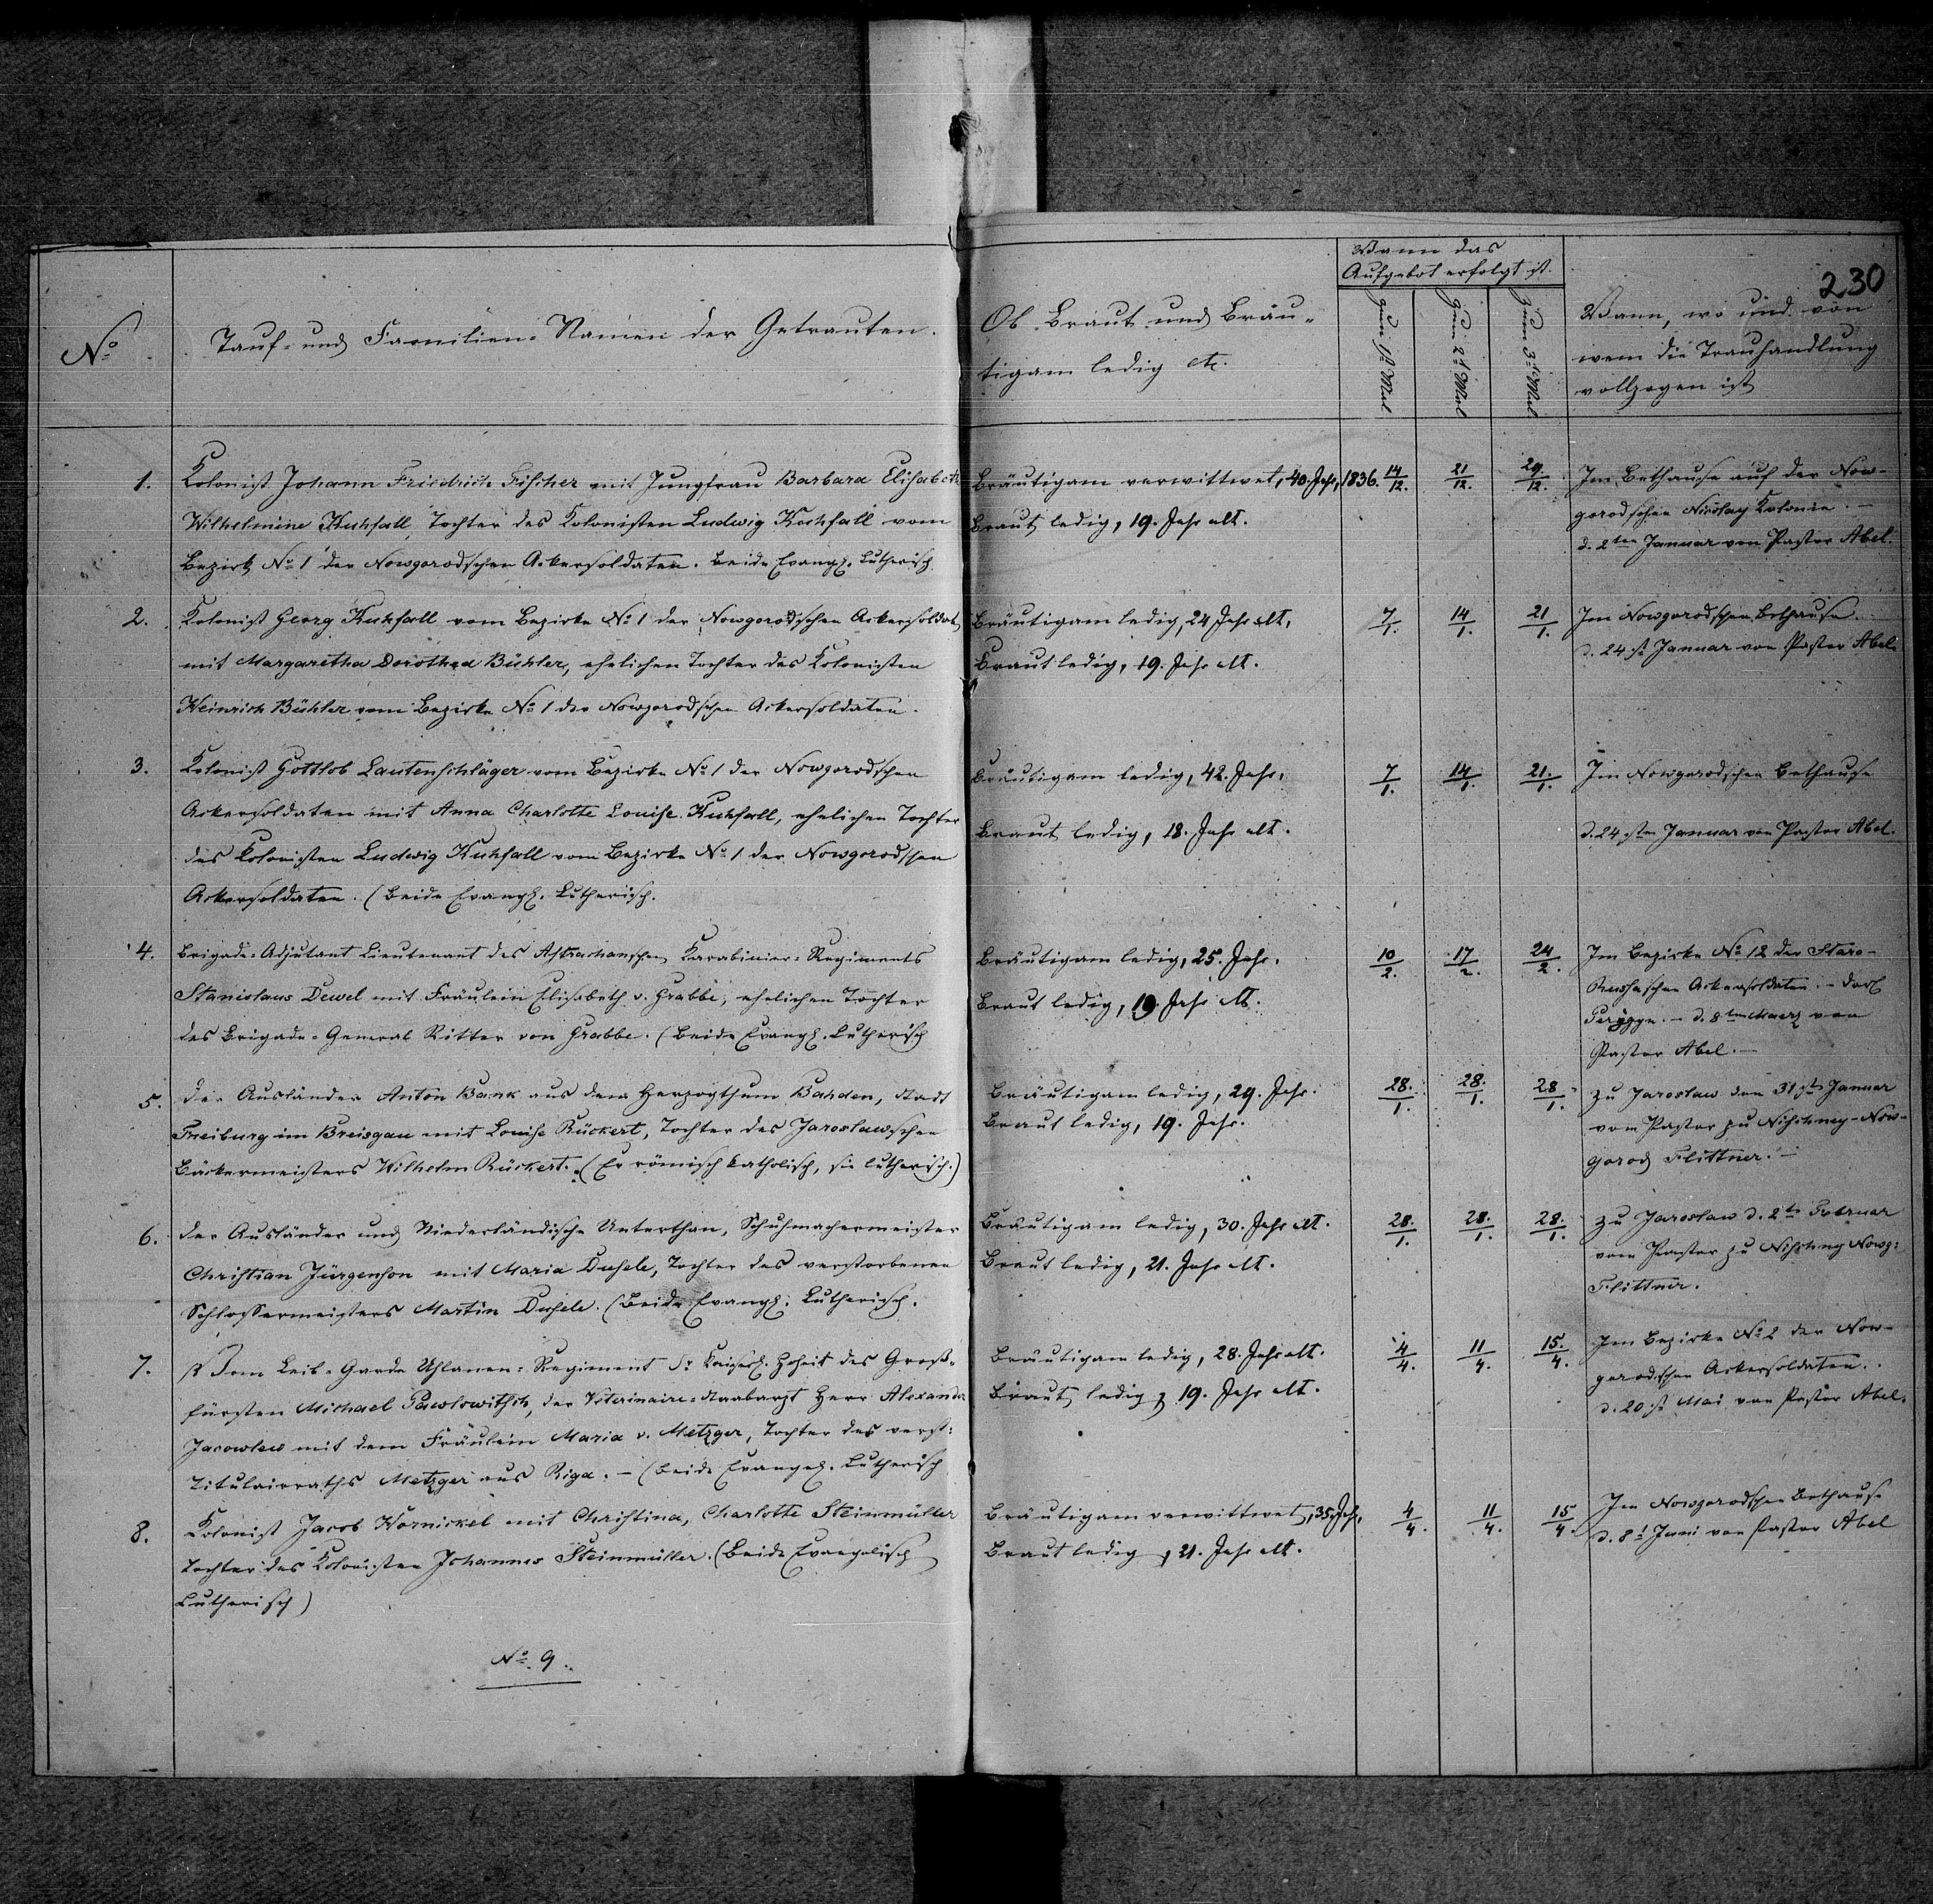 230
No
Tauf- und Familien-Namen der Getrauten.
Ob Braut und Bräu-
tigam ledig etc.
Wann das
Aufgebot erfolgt ist.
zum 1st Mal
zum 2t Mal
zum 3t Mal
Wann, wo und von
wem die Trauhandlung
vollzogen ist
1.
Kolonist Johann Friedrich Fischer mit Jungfrau Barbara Elisabeth
Wilhelmine Kuhfall, Tochter des Kolonisten Ludwig Kuhfall vom
Bezirk No 1 der Nowgorodschen Ackersoldaten. Beide Evangl. Lutherisch
Bräutigam verwittwet, 40. Jahr,
Braut ledig, 19. Jahr alt.
1836. 14/12.
21/12.
29./12.
Im Bethause auf der Now-
gorodschen Nicolay Kolonie. —
d. 2ten Januar von Pastor Abel.
2.
Kolonist Georg Kuhfall vom Bezirke No 1 der Nowgorodschen Ackersoldat
mit Margaretha Dorothea Bühler, ehelichen Tochter des Kolonisten
Heinrich Bühler vom Bezirke No 1 der Nowgorodschen Ackersoldaten.
Bräutigam ledig, 24 Jahr alt,
Braut ledig, 19. Jahr alt.
7/1.
14/1.
21/1.
Im Nowgorodschen Bethause.
d. 24st Januar von Pastor Abel.
3.
Kolonist Gottlob Lautenschläger vom Bezirke No 1 der Nowgorodschen
Ackersoldaten mit Anna Charlotte Louise Kuhfall, ehelichen Tochter
des Kolonisten Ludwig Kuhfall vom Bezirke No 1 der Nowgorodschen
Ackersoldaten. (Beide Evangl. Lutherisch.
Bräutigam ledig, 42. Jahr,
Braut ledig, 18. Jahr alt.
7/1.
14/1.
21./1.
Im Nowgorodschen Bethause
d. 24sten Januar von Pastor Abel.
4.
Brigade-Adjutant Lieutenant des Astrachanschen Karabinier-Regiments
Stanislaus Dewel mit Fräulein Elisabeth v. Grabbe, ehelichen Tochter
des Brigade-General Ritter von Grabbe. (Beide Evangl. Lutherisch
Bräutigam ledig, 25. Jahr,
Braut ledig, 19. Jahr alt.
10/2.
17/2.
24/2.
Im Bezirke No 12 der Staro-
Russaschen Ackersoldaten. – Dorf
– d. 8ten Maerz von
Pastor Abel. —
5.
Der Ausländer Anton Bank aus dem Herzogthum Bahden, Stadt
Freiburg im Breisgau mit Louise Rückert, Tochter des Jaroslawschen
Bäckermeisters Wilhelm Rückert. (Er römisch katholisch, sie lutherisch.)
Bräutigam ledig, 29. Jahr.
Braut ledig, 19. Jahr.
28./1.
28./1.
28/1.
zu Jaroslaw den 31st Januar
vom Pastor zu Nischney-Now-
gorod Flittner. —
6.
Der Ausländer und Niederländische Unterthan, Schuhmachermeister
Christian Jürgenson mit Maria Duhele, Tochter des verstorbenen
Schlossermeisters Martin Duhele. (Beide Evangl. Lutherisch.
Bräutigam ledig, 30. Jahr alt.
Braut ledig, 21. Jahr alt.
28./1.
28./1.
28./1.
zu Jaroslaw d. 2ten Februar
vom Pastor zu Nischny Nowg:
Flittner.
7.
Vom Leib-Garde Uhlanen-Regiment Sr Kaiserl. Hoheit des Groß-
fürsten Michael Pawlowitsch, der Veterinaire-Staabarzt Herr Alexander
Jacowlew mit dem Fräulein Maria v. Metzger, Tochter des verst:
Titulairraths Metzger aus Riga. – (Beide Evangel. Lutherisch
Bräutigam ledig, 28. Jahr alt.
Braut ledig, 19. Jahr alt.
4/4.
11/4.
15./4.
Im Bezirke No 2 der Now-
gorodschen Ackersoldaten.
d. 20st Mai von Pastor Abel.
8.
Kolonist Jacob Hornickel mit Christina, Charlotte Steinmüller
Tochter des Kolonisten Johannes Steinmüller. (Beide Evangelisch
Lutherisch)
Bräutigam verwittwet, 35. Jahr,
Braut ledig, 21. Jahr alt.
4/4.
11/4.
15/4
Im Nowgorodschen Bethause
d. 8t Juni von Pastor Abel
No. 9.